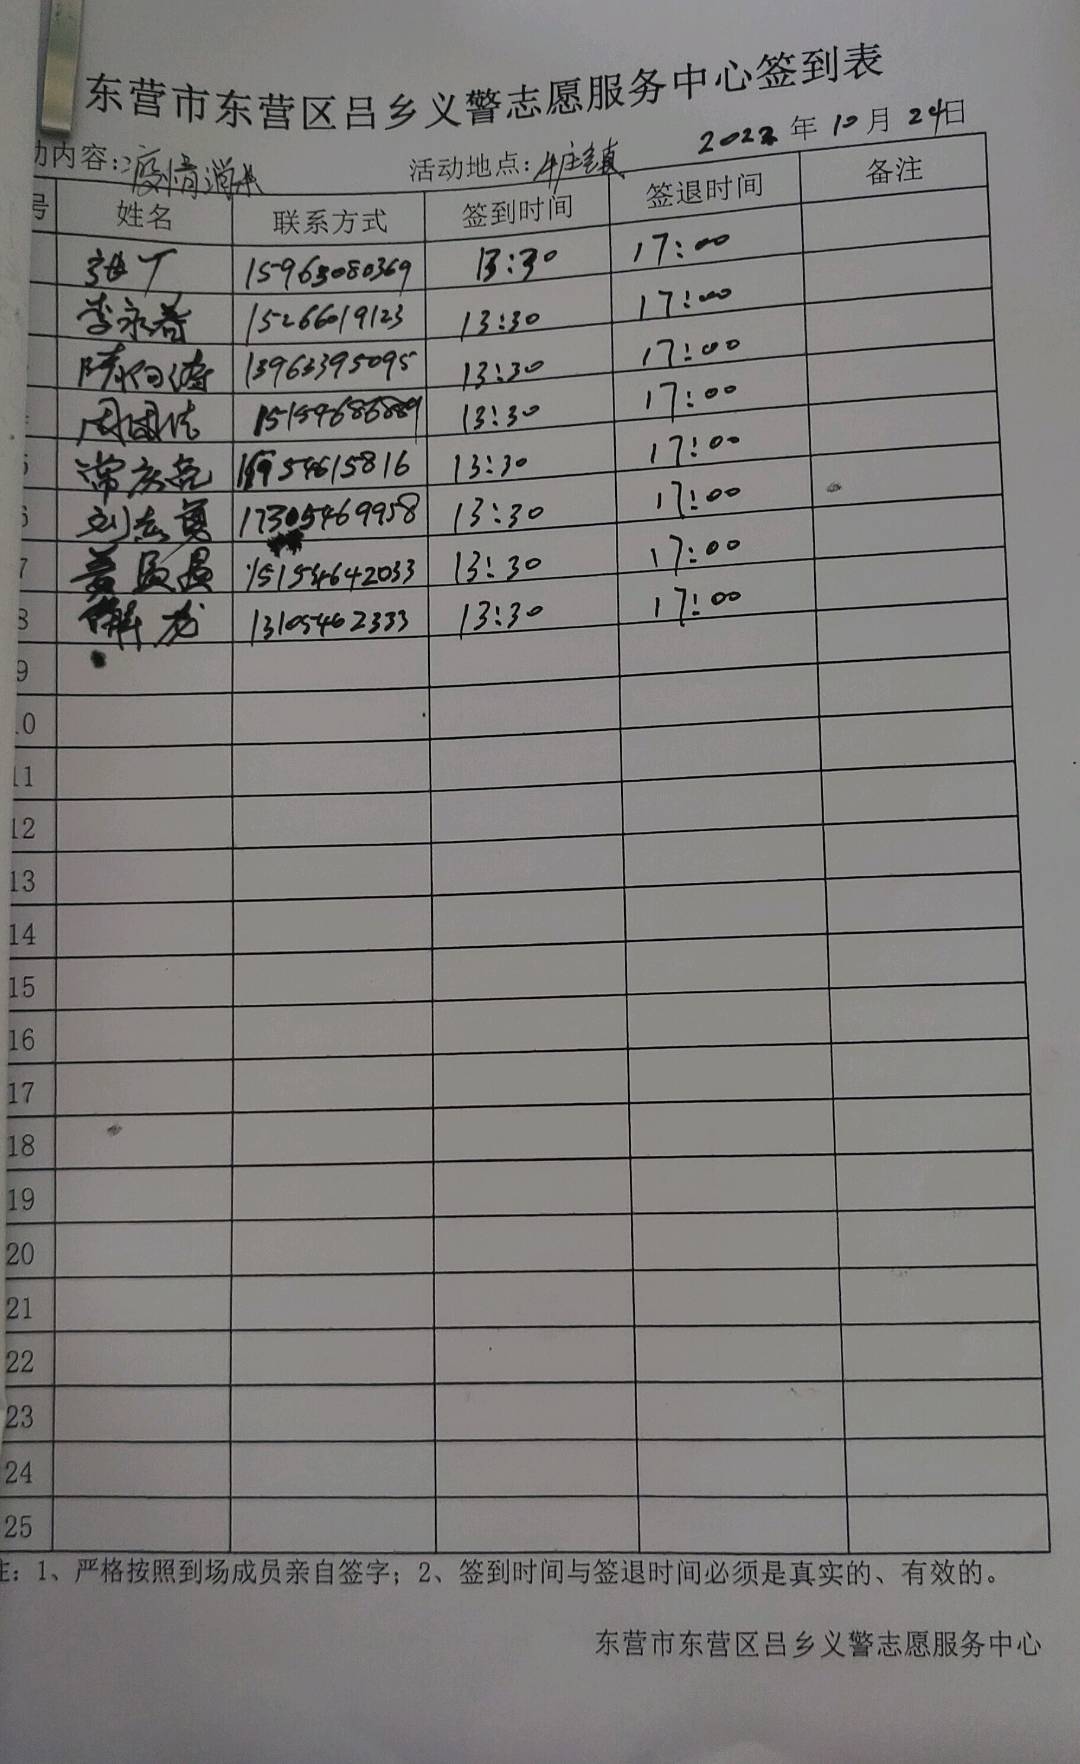 东营市东营区吕乡义警志愿服务中心签到表
2022年10月24日
动内容:疫情消杀 活动地点:牛庄镇
号 姓名 联系方式 签到时间 签退时间 备注
张丁 15963080369 13:30 17:00
李永春 15266019123 13:30 17:00
隋向涛 13963395095 13:30 17:00
周国伟 13:30 17:00
5 常庆亮 13:30 17:00
6 刘志勇 17305469958 13:30 17:00
7 15154642033 13:30 17:00
8 解龙 13105462333 13:30 17:00
9
10
11
12
13
14
15
16
17
18
19
20
21
22
23
24
25
注:1、严格按照到场成员亲自签字;2、签到时间与签退时间必须是真实的、有效的。
东营市东营区吕乡义警志愿服务中心